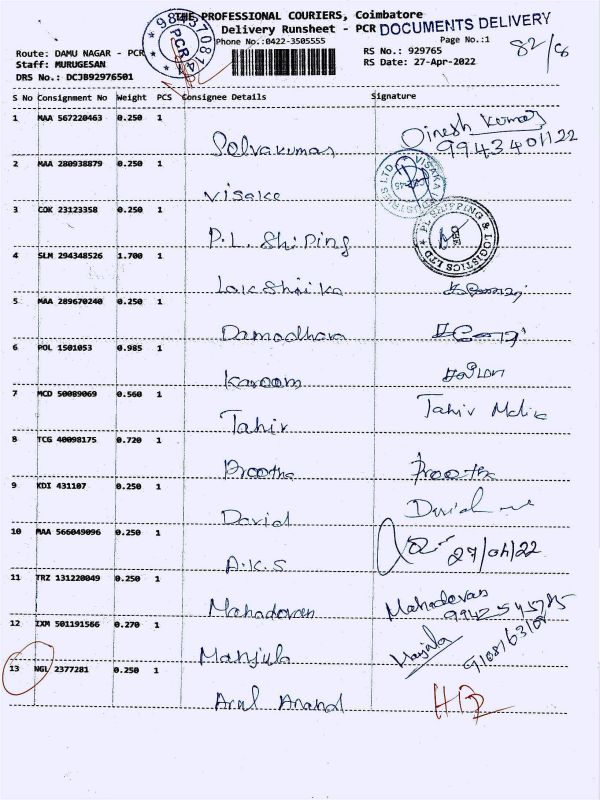 THE PROFESSIONAL COURIERS, Coimbatore
Delivery Runsheet - PCR DOCUMENTS DELIVERY
Phone No.:0422-3505555 Page No.:1
82/8
Route: DAMU NAGAR - PCR RS No.: 929765
Staff: MURUGESAN RS Date: 27-Apr-2022
DRS No.: DCJB92976501
PCR
S No Consignment No Weight PCS Consignee Details Signature
1 MAA 567220463 0.250 1
Selvakumar Dinesh Kumar
9943401122
2 MAA 280938879 0.250 1
Visaka VISAKA INDUSTRIES LTD
CBE-45
3 COK 23123358 0.250 1
P.L. Shiping PL SHIPPING & LOGISTICS LTD
4 SLM 294348526 1.700 1
Lakshaika
5 MAA 289670240 0.250 1
Damodhara
6 POL 1501053 0.985 1
Karoom
7 MCD 50089069 0.560 1
Tahir Tahir
8 TCG 40098175 0.720 1
Preetha Preetha
9 KDI 431107 0.250 1
David David
10 MAA 566049096 0.250 1
A.K.S 27/04/22
11 TRZ 131220049 0.250 1
Mahadevan Mahadevan
12 IXM 501191566 0.270 1
Manjula Manjula
13 NGL 2377281 0.250 1
Arul Anand